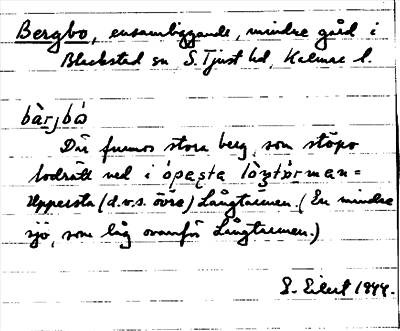 Bergbo, ensambyggande, mindre gård i
Blackstad sn S. Tjust hd, Kalmar l.
bàrjbò
Där finnes stora berg, som stöpa
lodrätt ned i ópasta lòŋtàrman =
Uppersta (d.v.s. övre) Långtarmen. (En mindre
sjö, som låg ovanför Långtarmen.)
S. Eilert 1944.